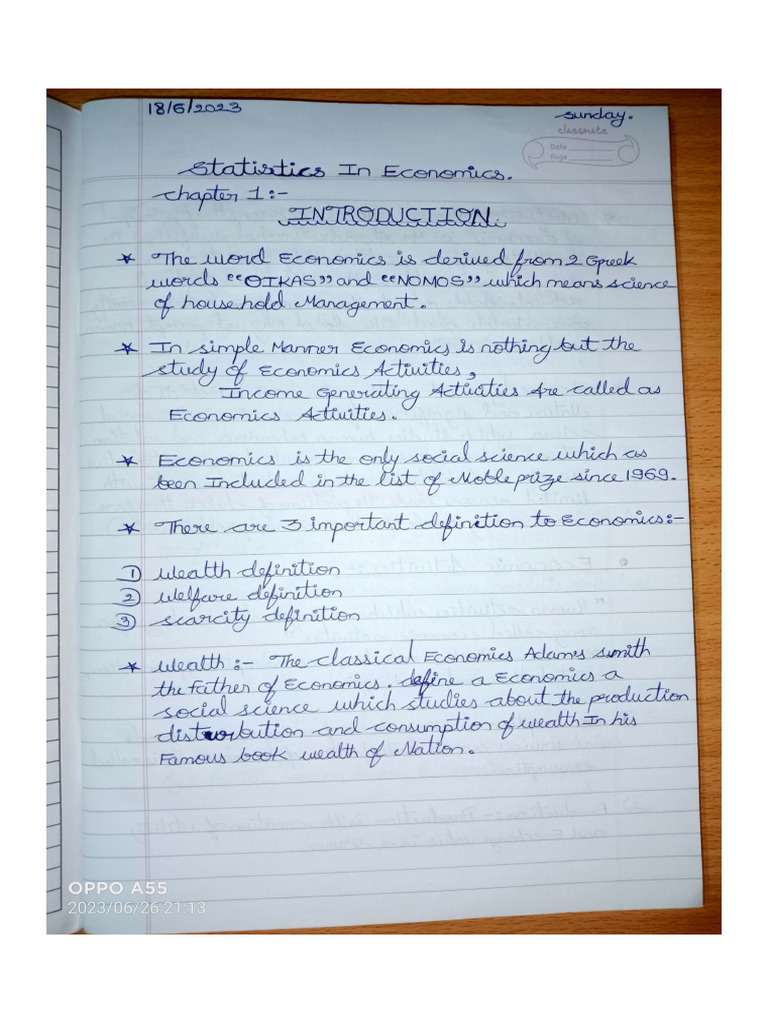 18/6/2023
sunday.
classmate
Date
Page
Statistics In Economics.
chapter 1:-
INTRODUCTION.
* The word Economics is derived from 2 Greek
words "OIKAS" and "NOMOS", which means science
of household Management.
* In simple Manner Economics is nothing but the
study of Economics Activities,
Income Generating Activities Are called as
Economics Activities.
* Economics is the only social science which as
been Included in the list of Noble prize since 1969.
* There are 3 important definition to Economics:-
1 wealth definition
2 welfare definition
3 scarcity definition
* wealth :- The classical Economics Adam's smith
the Father of Economics. define a Economics a
social science which studies about the production
distribution and consumption of wealth In his
Famous book wealth of Nation.
OPPO A55
2023/06/26 21:13